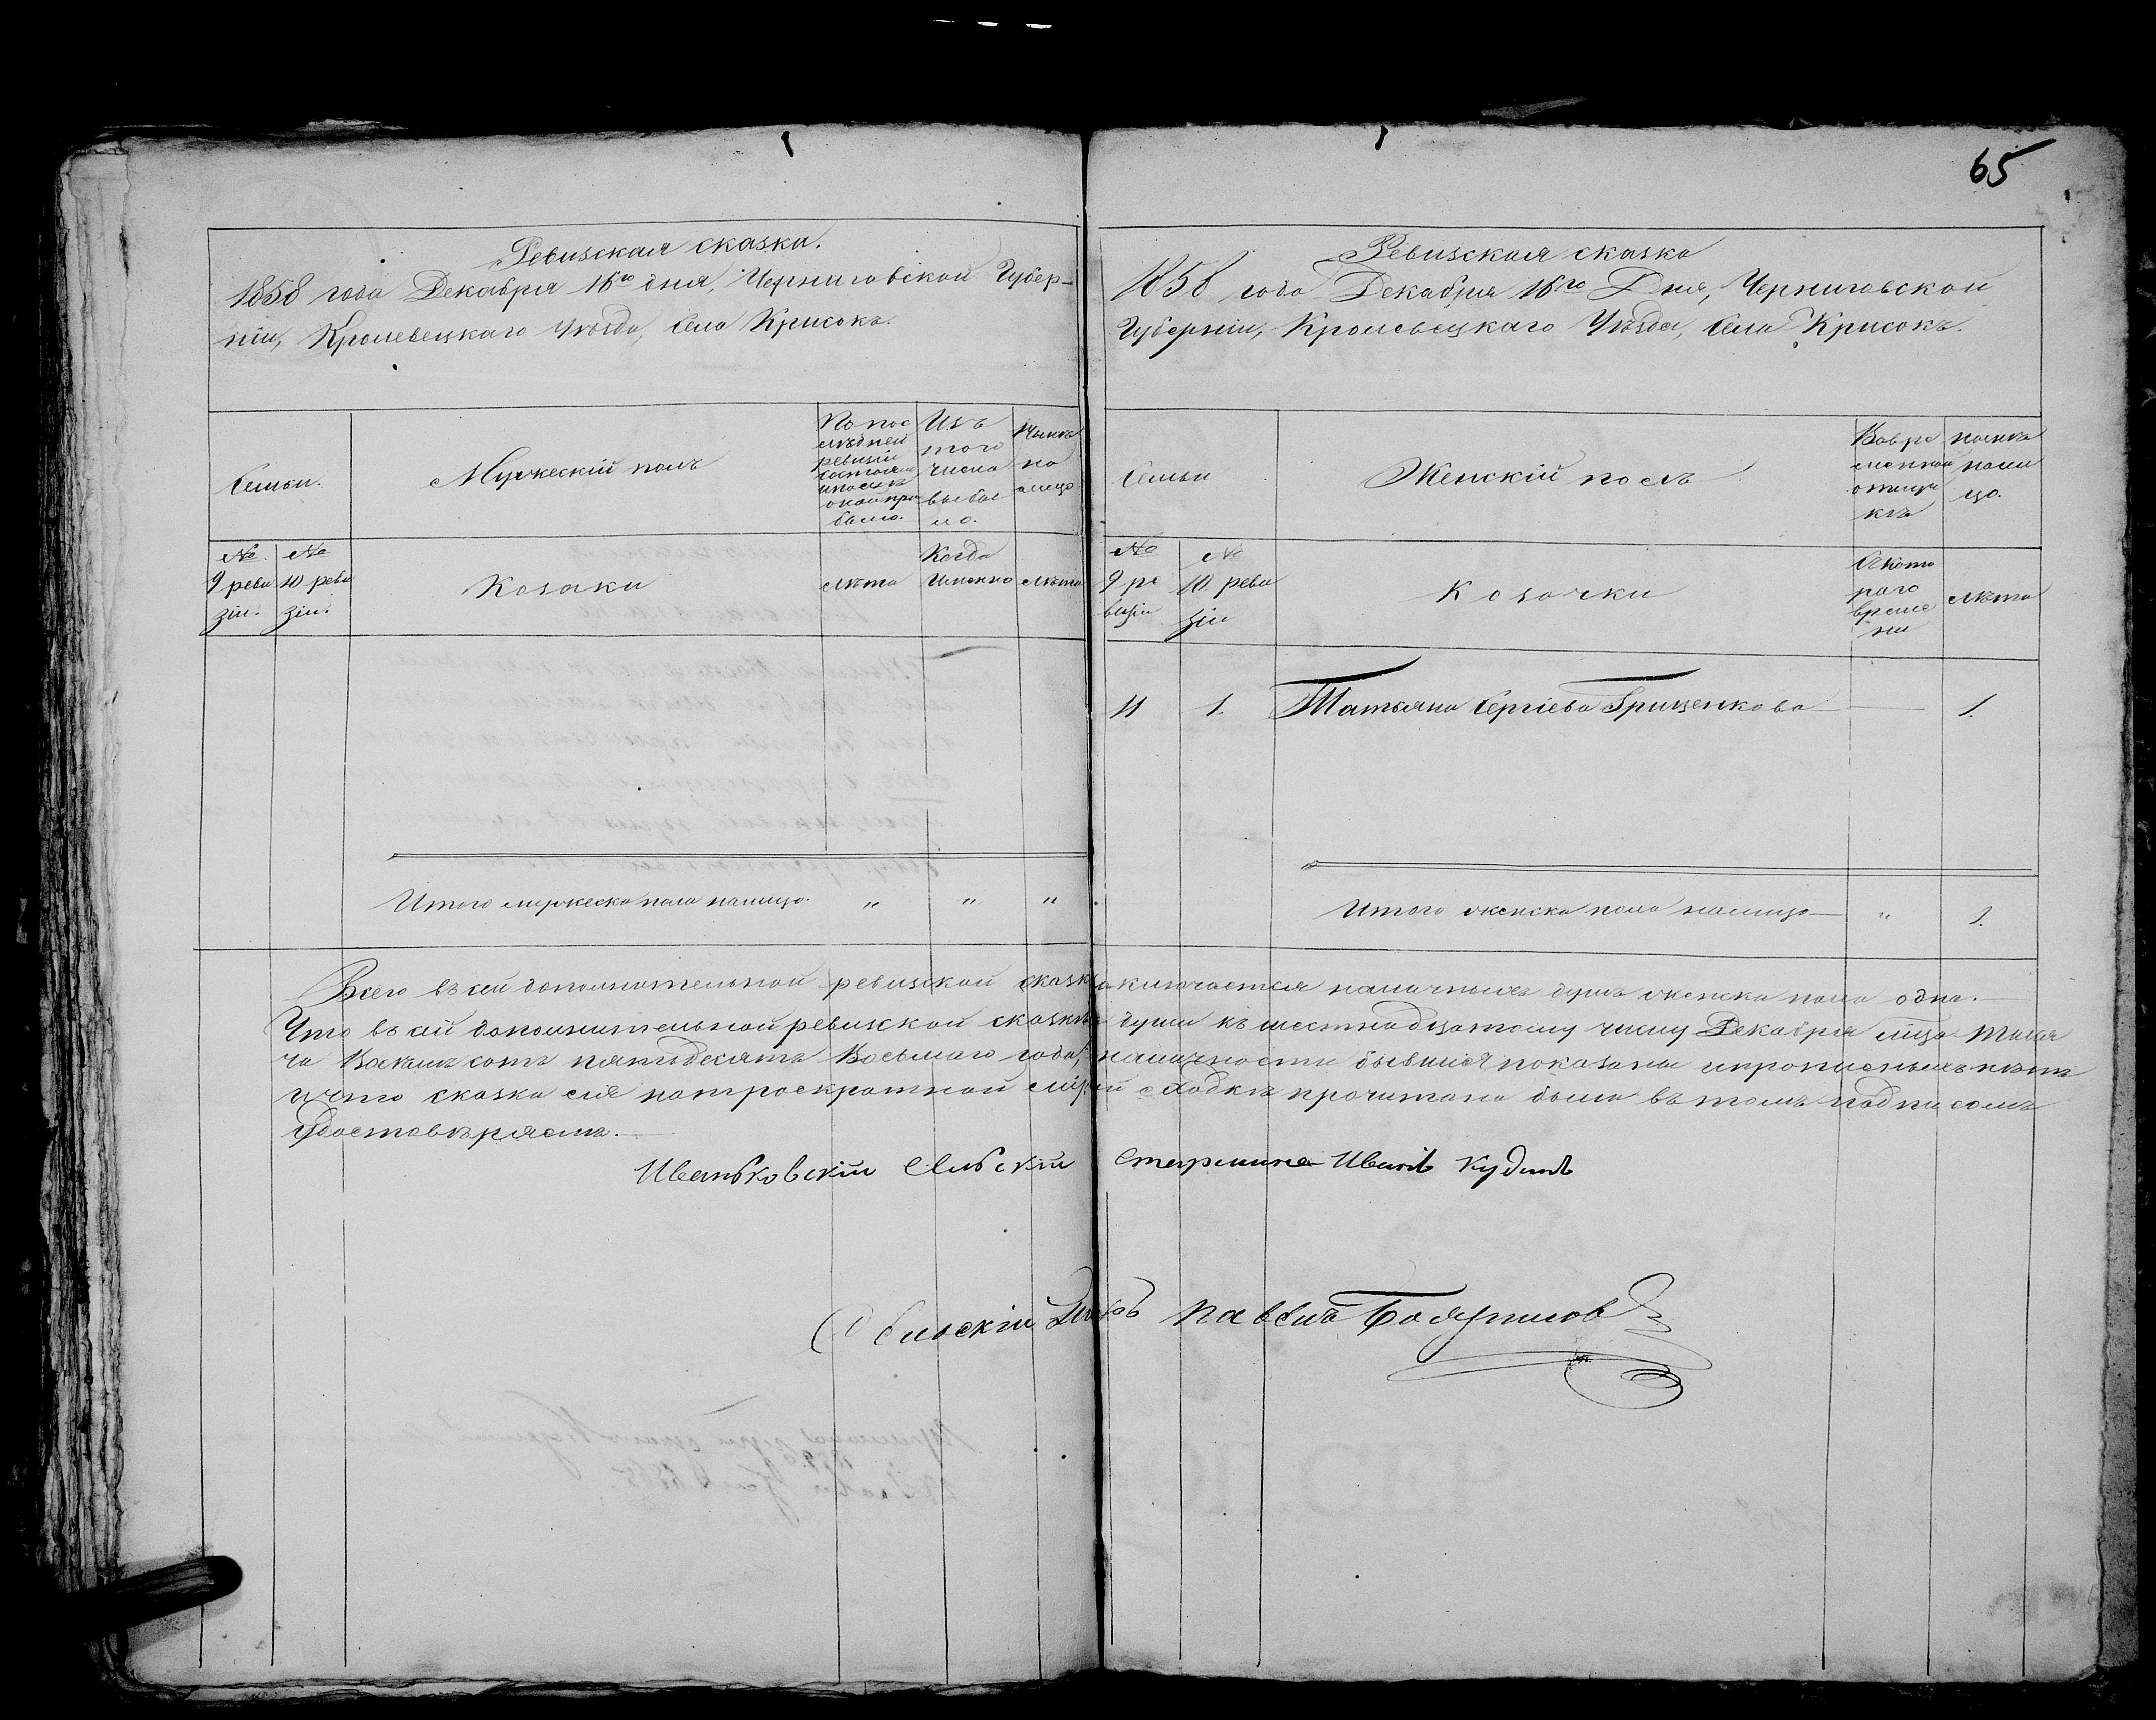 65
Ревизская сказка.
1858 года Декабря 16го дня, Черниговской Губер-
ніи, Кролевецкаго Уѣзда, Села Крисокъ.
Семьи.
Мужескій полъ
По пос
лѣдней
ревизіи
состояло
и послѣ
оной при
было.
Изъ
того
числа
выбы
ло.
Нынѣ
на
лицо
№ 9 реви
зіи.
№ 10 реви
зіи.
Козаки
лѣта
Когда
Именно
лѣта
Итого мужеска пола налицо. " " "
Ревизская сказка
1858 года Декабря 16го Дня, Черниговской
Губерніи, Кролевецкаго Уѣзда, Села Крисокъ.
Семьи
Женскій полъ
Вовре
менной
отлуч
кѣ
нынѣ
нали
цо.
№ 9 ре
визіи
№ 10 реви
зіи
Козачки
Ското
раго
време
ни
лѣта
11 1. Татьяна Сергіева Гриценкова — 1.
Итого женска пола налицо — " 1.
Всего въ сей дополнительной ревизской сказкѣ заключается наличныхъ душъ женска пола одна.—
Что въ сей дополнительной ревизской сказкѣ души къ шестнадцатому числу Декабря мца тыся
ча Восемь сотъ пятьдесятъ Восьмаго года, наличности бывшія показаны и прописныхъ нѣтъ
и что сказка сія на троекратной мірской сходкѣ прочитана была въ томъ подписомъ
Удостовѣряемъ.—
Иваньковскій Сельскій Старшина Иванъ Кудинъ
Сельскій Писарь Павелъ Бояриновъ